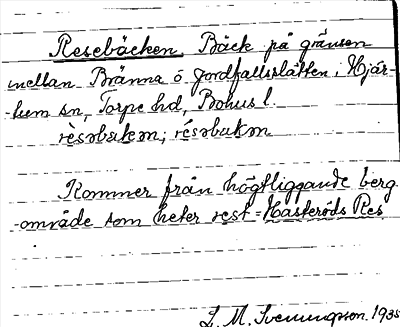 Resebäcken, Bäck på gränsen
mellan Bränna o Jordfallsslätten, Hjär-
-tum sn, Torpe hd, Bohus l.
Kommer från högtliggande berg
-område som heter rest = Hasteröds Res.
L. M. Svenungsson. 1935